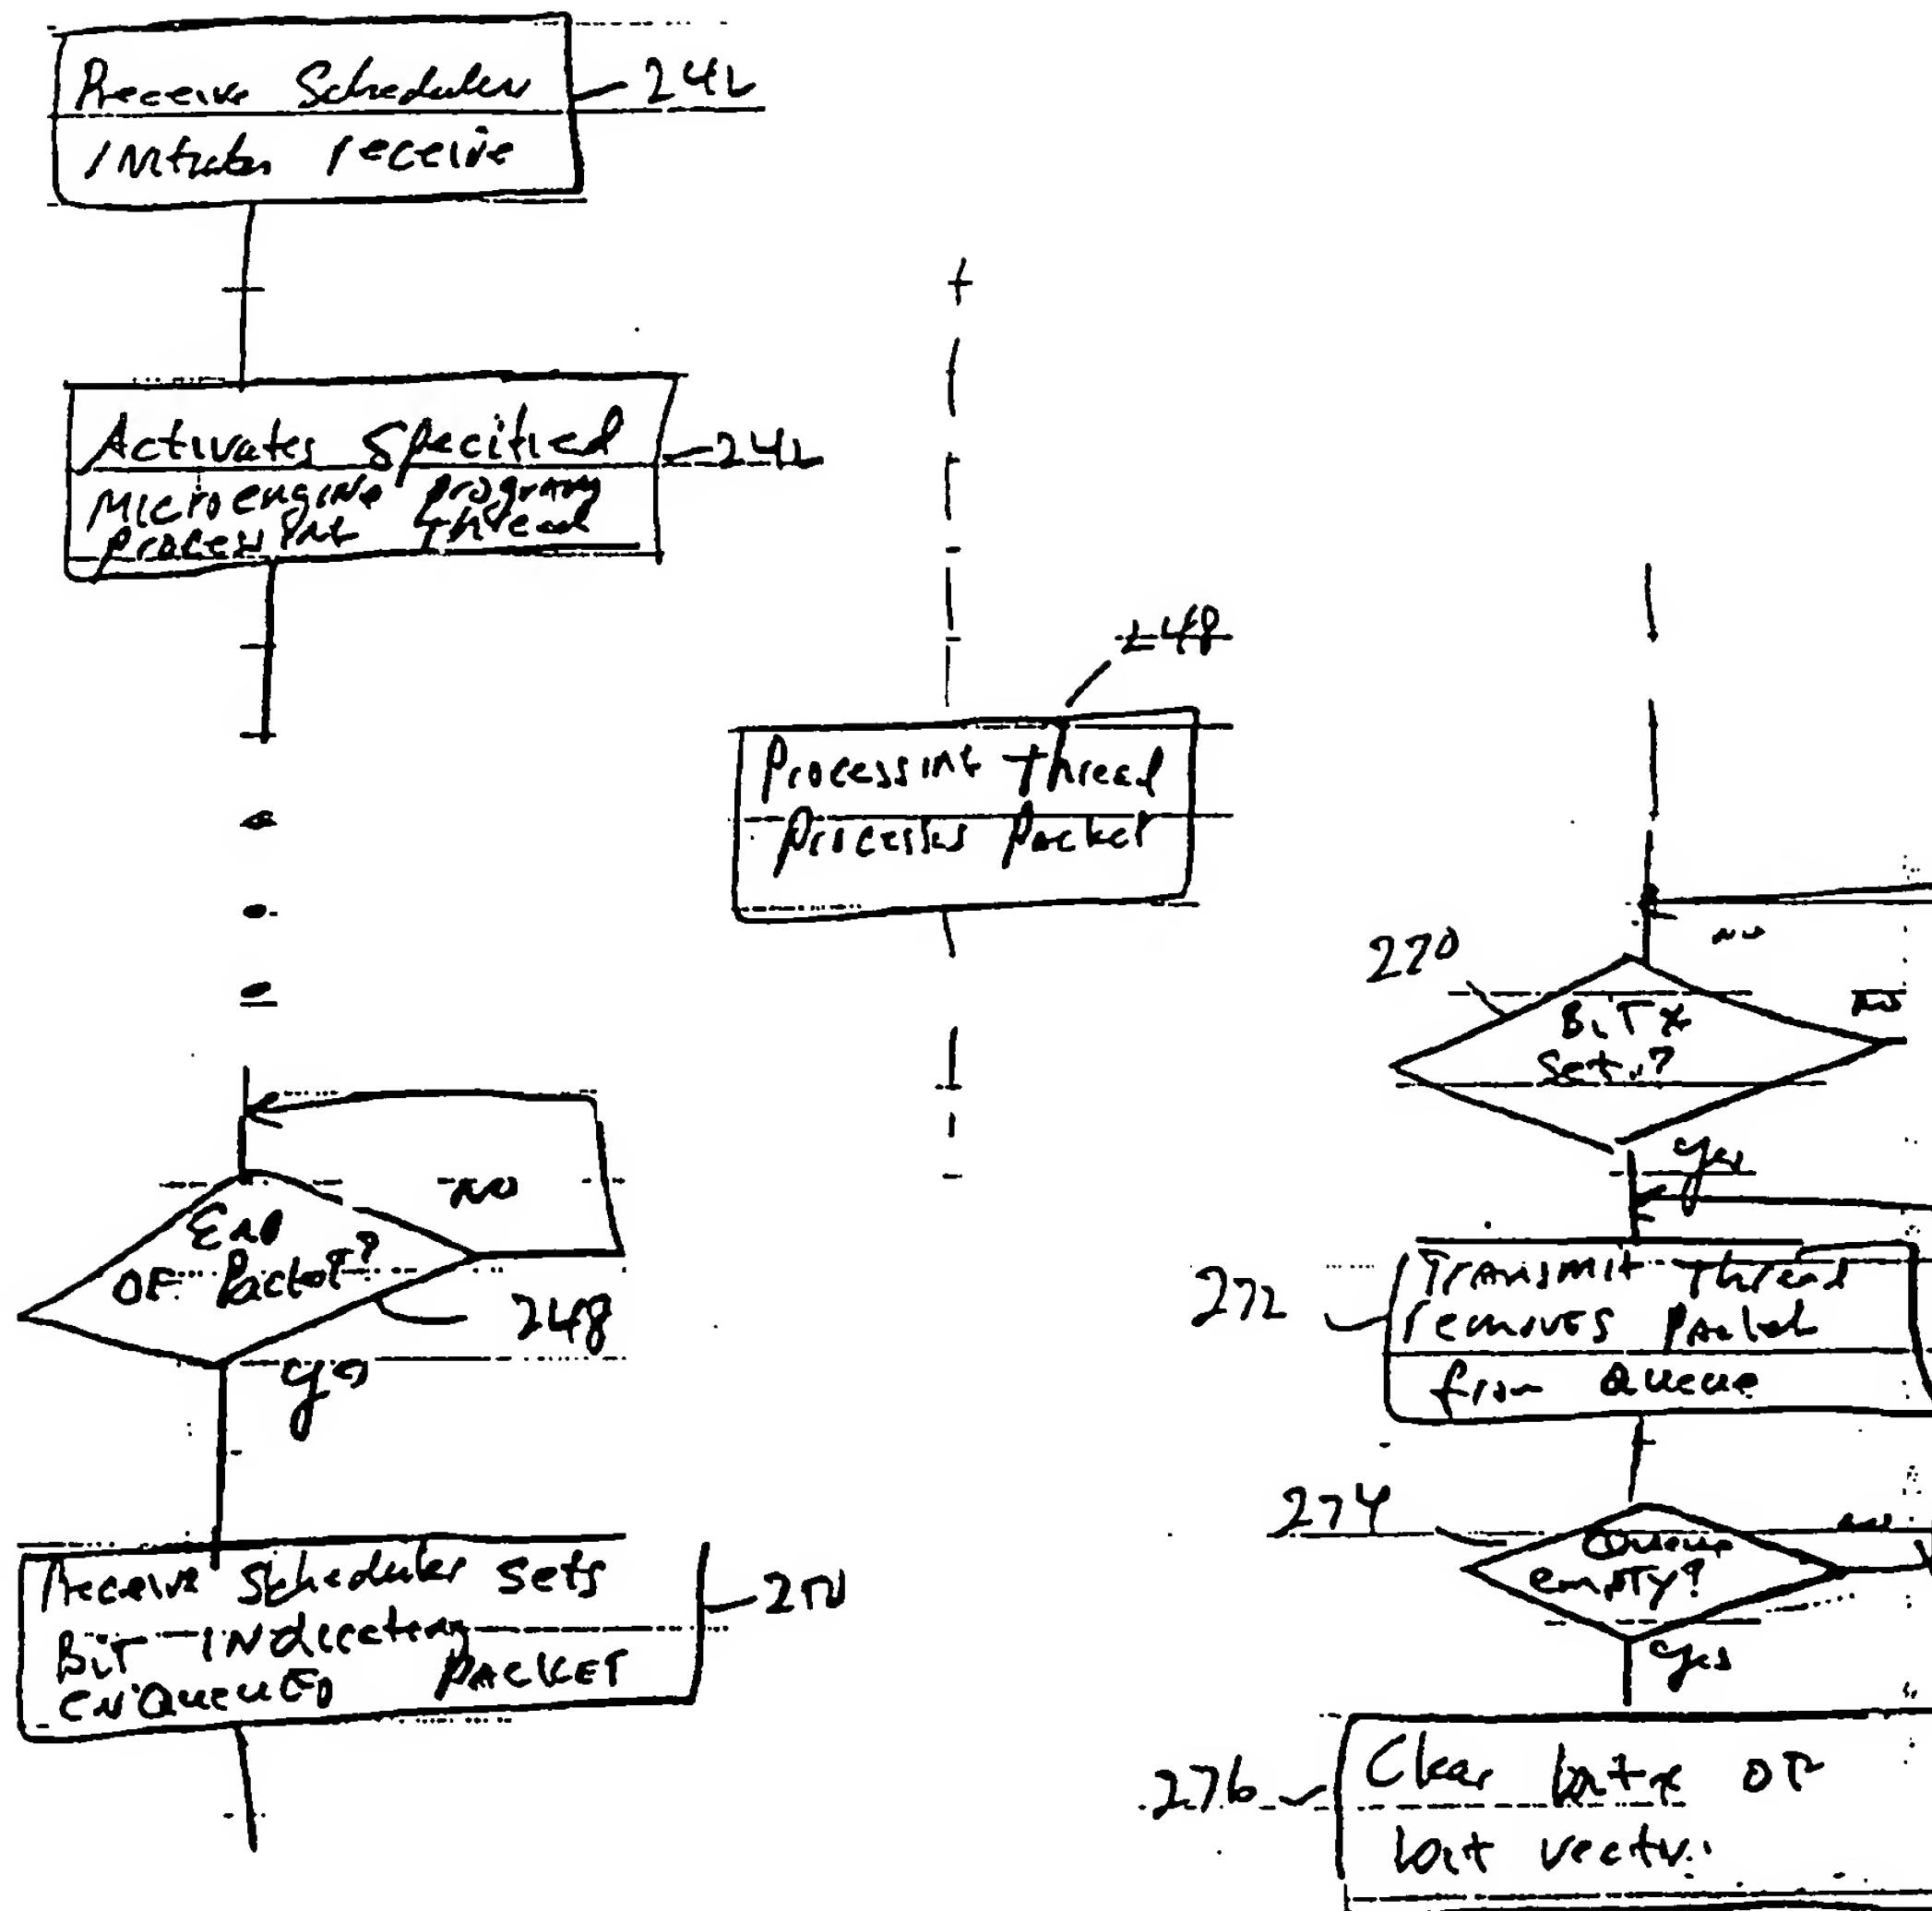 Receive Scheduler
242
Initiates receive
Activates Specified
242
Microengine program
processing thread
248
Processing thread
Processes Packet
End
of Packet?
no
248
yes
Receive Scheduler sets
Bit indicating
enqueued packet
250
no
270
no
Bit x
Set?
yes
272
Transmit thread
removes packet
from Queue
274
no
Queue
empty?
yes
276
Clear bit x of
bit vector